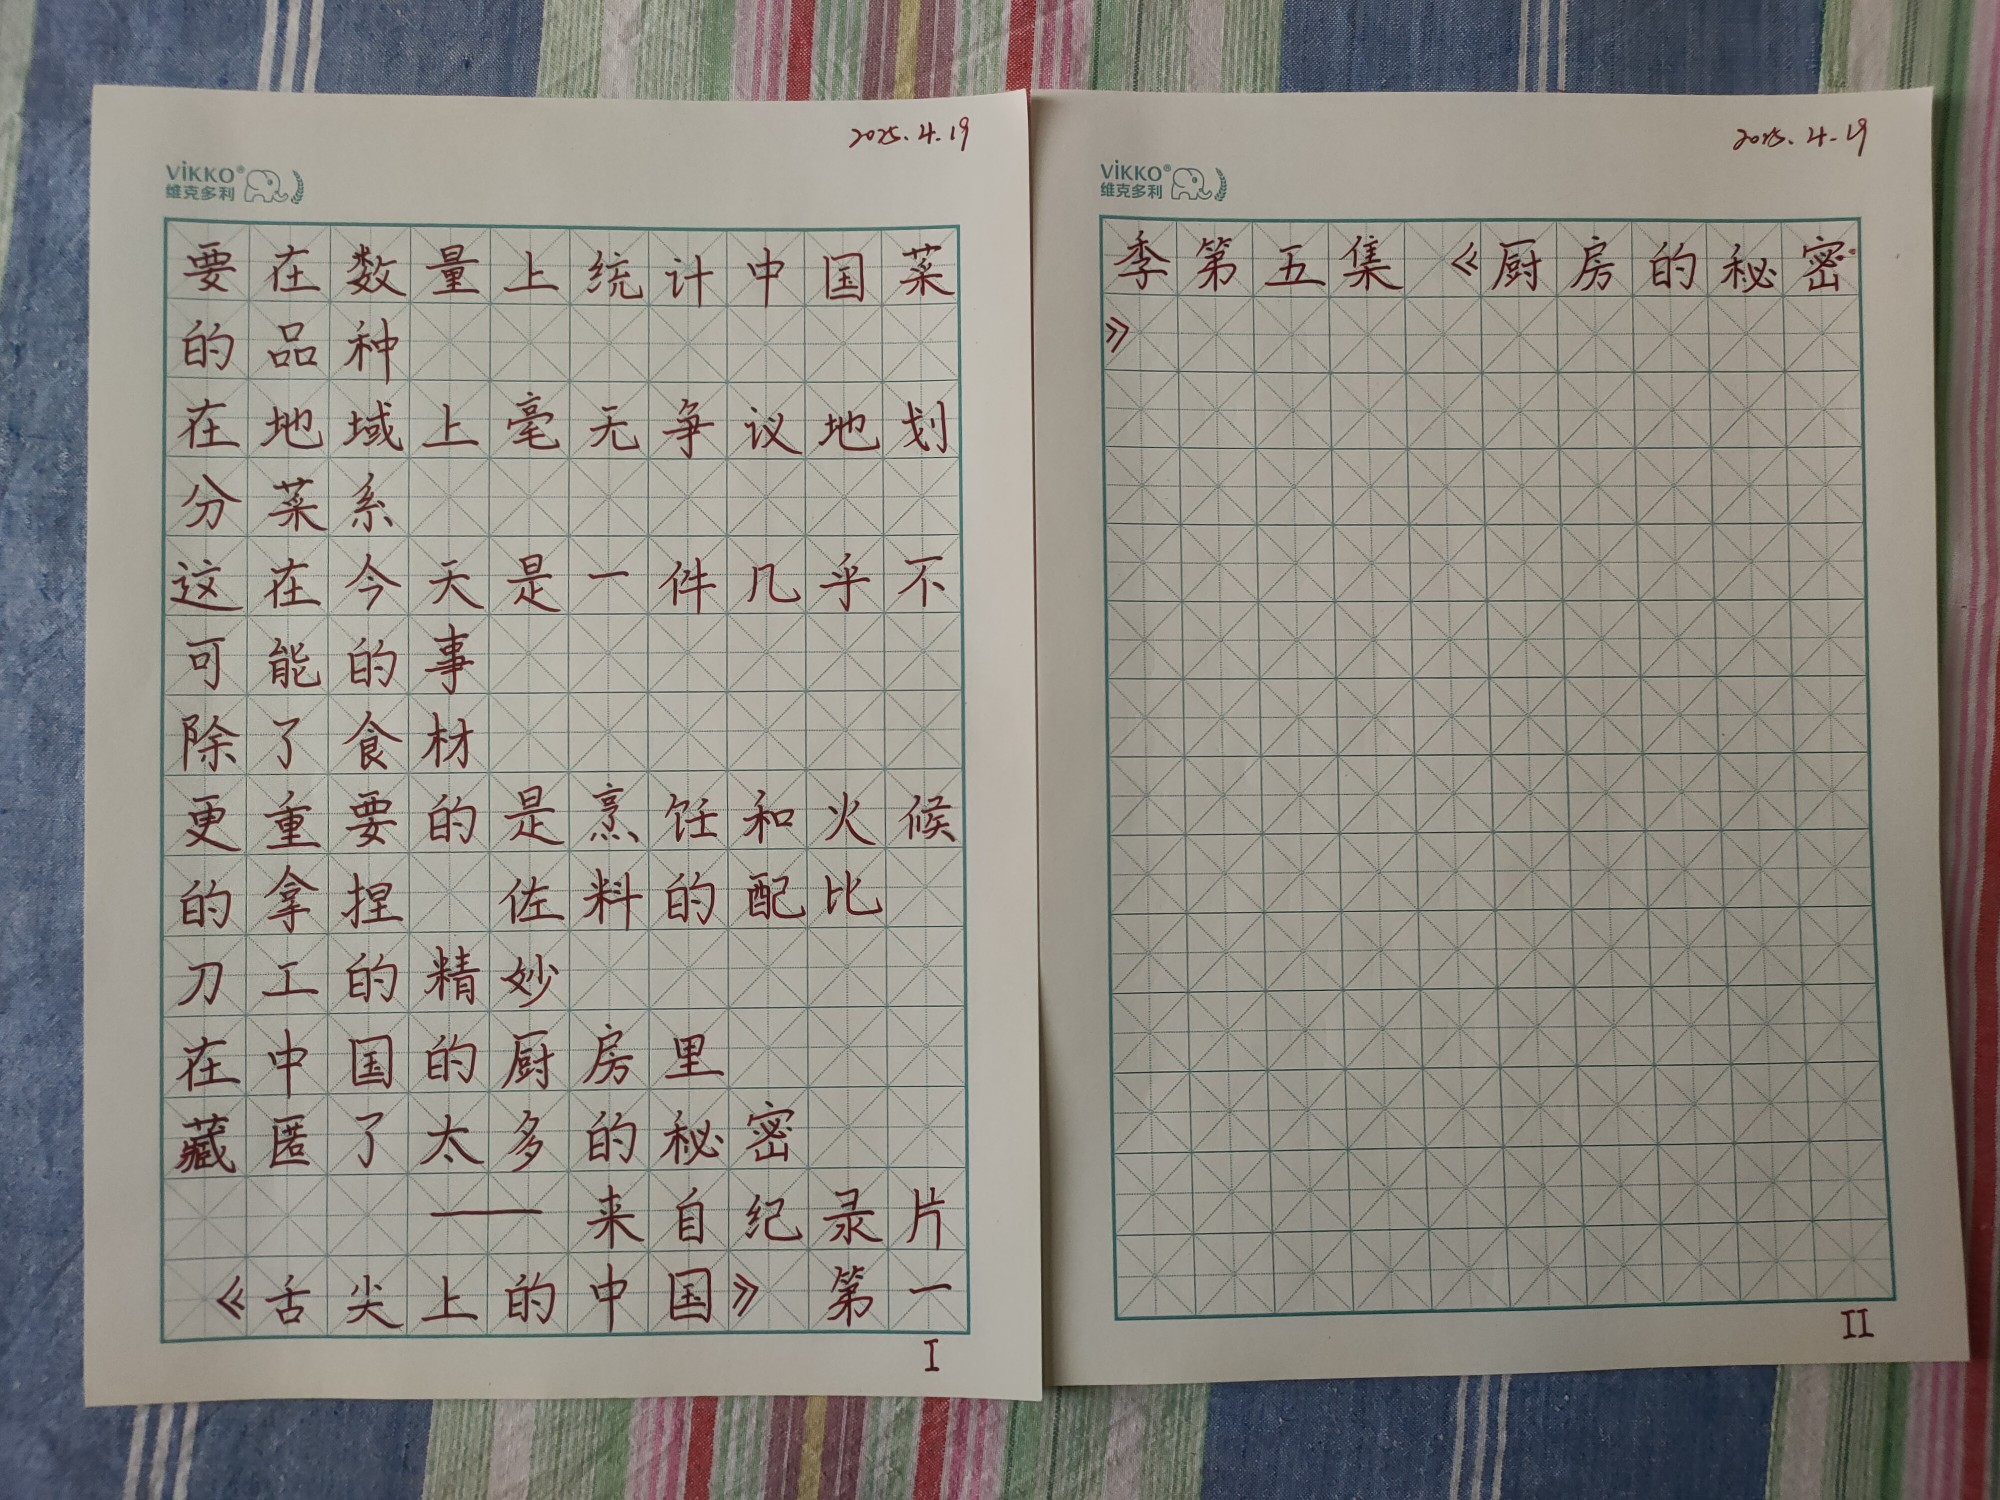 2025.4.19
VIKKO®
维克多利
要在数量上统计中国菜
的品种
在地域上毫无争议地划
分菜系
这在今天是一件几乎不
可能的事
除了食材
更重要的是烹饪和火候
的拿捏 佐料的配比
刀工的精妙
在中国的厨房里
藏匿了太多的秘密
——来自纪录片
《舌尖上的中国》 第一
I
2025.4.19
VIKKO®
维克多利
季第五集 《厨房的秘密
》
II